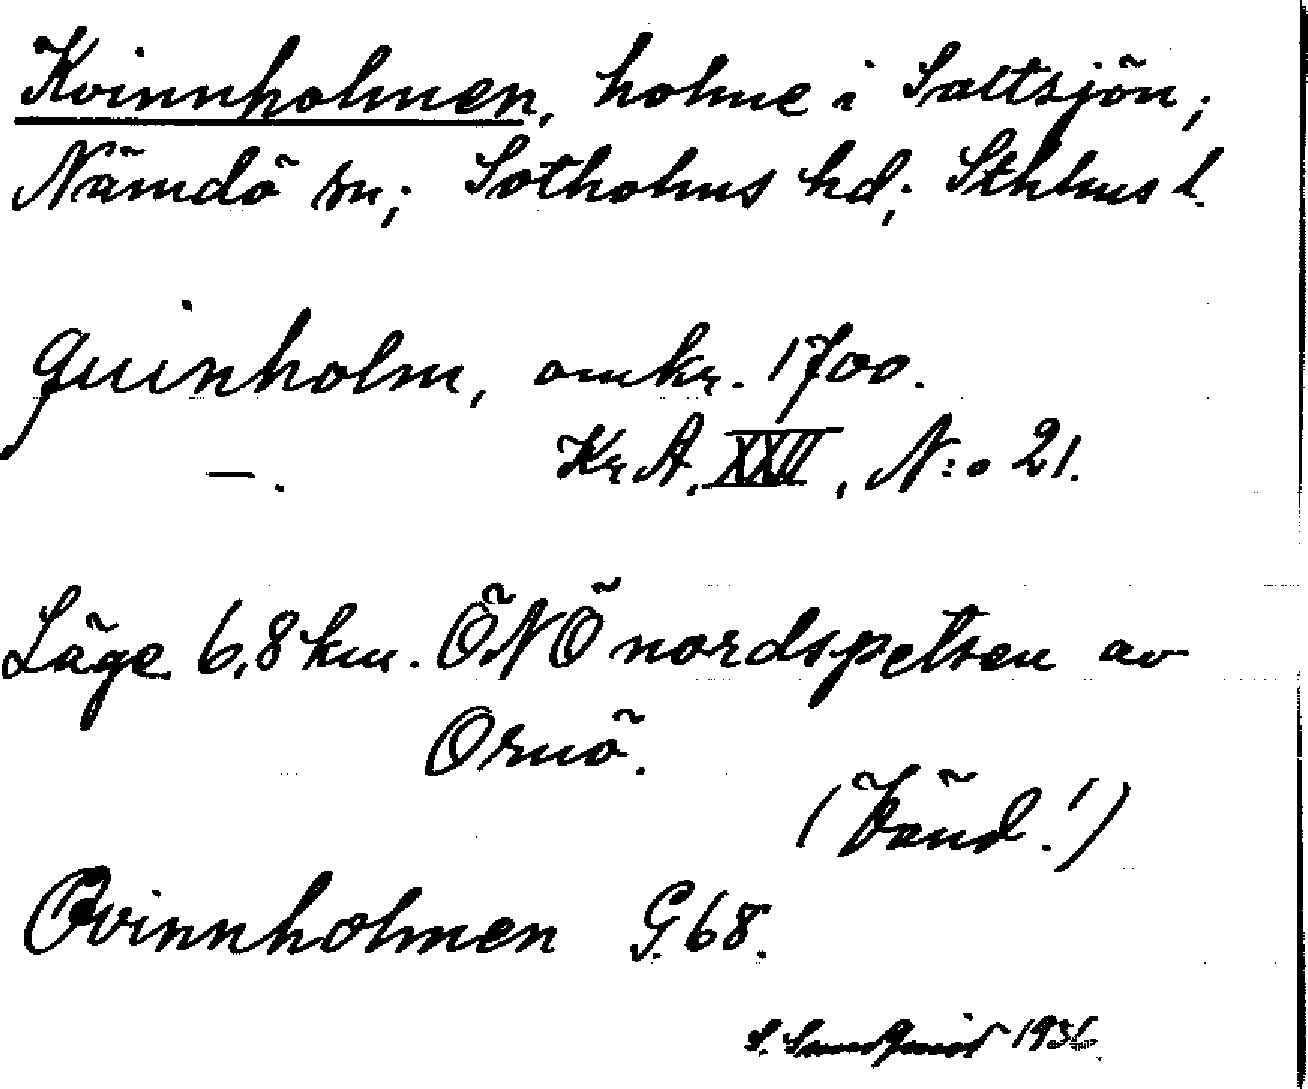 Kvinnholmen, holme i Saltsjön;
Nämdö sn; Sotholms hd; Sthlms l.
quinholm, omkr. 1700.
—. Kr. A. XXII, N:o 21.
Läge 6,8 km. ÖNÖ nordspetsen av
Ornö.
(Vänd!)
Qvinnholmen G. 68.
S. Sundqvist 1931.